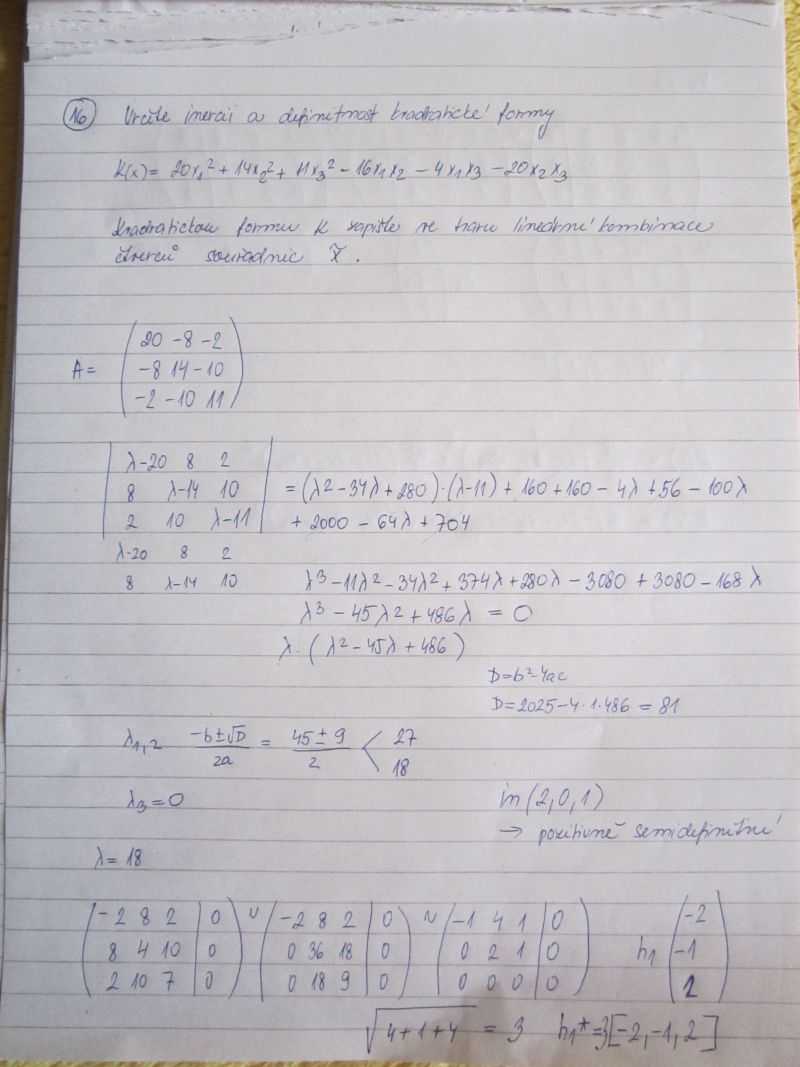 16 Určete inercii a definitnost kvadratické formy
K(x) = 20x₁² + 14x₂² + 11x₃² - 16x₁x₂ - 4x₁x₃ - 20x₂x₃
Kvadratickou formu K zapište ve tvaru lineární kombinace
čtverců souřadnic x̃.
A = (20 -8 -2
-8 14 -10
-2 -10 11)
|λ-20 8 2|
|8 λ-14 10| = (λ² - 34λ + 280)·(λ-11) + 160 + 160 - 4λ + 56 - 100λ
|2 10 λ-11| + 2000 - 64λ + 704
λ-20 8 2
8 λ-14 10 λ³ - 11λ² - 34λ² + 374λ + 280λ - 3080 + 3080 - 168λ
λ³ - 45λ² + 486λ = 0
λ·(λ² - 45λ + 486)
D = b² - 4ac
D = 2025 - 4·1·486 = 81
λ₁,₂ (-b±√D)/2a = (45±9)/2 < 27
18
λ₃ = 0 in(2,0,1)
→ pozitivně semidefinitní
λ = 18
(-2 8 2 | 0) ~ (-2 8 2 | 0) ~ (-1 4 1 | 0) (-2)
(8 4 10 | 0) (0 36 18 | 0) (0 2 1 | 0) h₁ (-1)
(2 10 7 | 0) (0 18 9 | 0) (0 0 0 | 0) (2)
√(4+1+4) = 3 h₁* = 3[-2,-1,2]